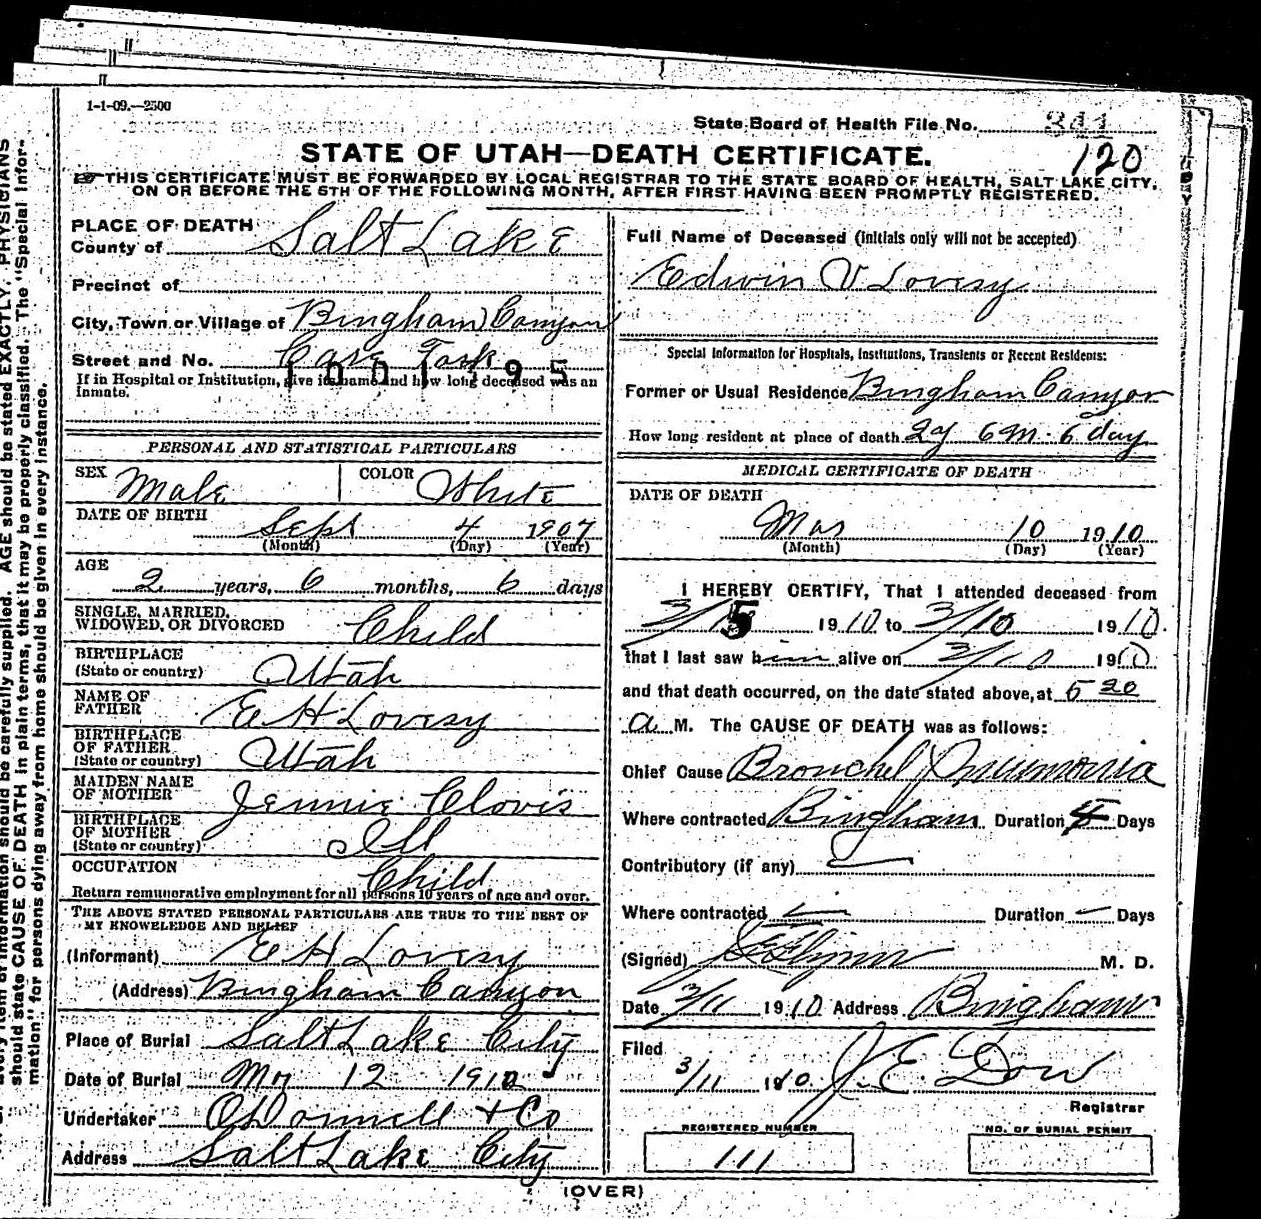 1-1-09.—2500
State Board of Health File No. 341
120
STATE OF UTAH—DEATH CERTIFICATE.
THIS CERTIFICATE MUST BE FORWARDED BY LOCAL REGISTRAR TO THE STATE BOARD OF HEALTH, SALT LAKE CITY,
ON OR BEFORE THE 5TH OF THE FOLLOWING MONTH, AFTER FIRST HAVING BEEN PROMPTLY REGISTERED.
PLACE OF DEATH
County of Salt Lake
Precinct of
City, Town or Village of Bingham Canyon
Street and No. Carr Fork
1001395
If in Hospital or Institution, give its name and how long deceased was an
inmate.
PERSONAL AND STATISTICAL PARTICULARS
SEX Male COLOR White
DATE OF BIRTH Sept 4 1907
(Month) (Day) (Year)
AGE 2 years, 6 months, 6 days
SINGLE, MARRIED,
WIDOWED, OR DIVORCED Child
BIRTHPLACE
(State or country) Utah
NAME OF
FATHER E H Lovesy
BIRTHPLACE
OF FATHER
(State or country) Utah
MAIDEN NAME
OF MOTHER Jennie Clovis
BIRTHPLACE
OF MOTHER
(State or country) Ill
OCCUPATION Child
Return remunerative employment for all persons 10 years of age and over.
THE ABOVE STATED PERSONAL PARTICULARS ARE TRUE TO THE BEST OF
MY KNOWELEDGE AND BELIEF
(Informant) E H Lovesy
(Address) Bingham Canyon
Place of Burial Salt Lake City
Date of Burial Mr 12 1910
Undertaker O'Donnell & Co
Address Salt Lake City
Full Name of Deceased (initials only will not be accepted)
Edwin V Lovesy
Special Information for Hospitals, Institutions, Transients or Recent Residents:
Former or Usual Residence Bingham Canyon
How long resident at place of death 2y 6m. 6 day
MEDICAL CERTIFICATE OF DEATH
DATE OF DEATH
Mar 10 1910
(Month) (Day) (Year)
I HEREBY CERTIFY, That I attended deceased from
3/5 1910 to 3/10 1910
that I last saw him alive on 3/10 1910
and that death occurred, on the date stated above, at 5 20
a M. The CAUSE OF DEATH was as follows:
Chief Cause Bronchel Pneumonia
Where contracted Bingham Duration 5 Days
Contributory (if any)
Where contracted Duration Days
(Signed) Flynn M. D.
Date 3/11 1910 Address Bingham
Filed
3/11 1910 J. E. Dow
Registrar
REGISTERED NUMBER
111
NO. OF BURIAL PERMIT
(OVER)
every item of information should be carefully supplied. AGE should be stated EXACTLY. PHYSICIANS
should state CAUSE OF DEATH in plain terms, that it may be properly classified. The "Special Infor-
mation" for persons dying away from home should be given in every instance.